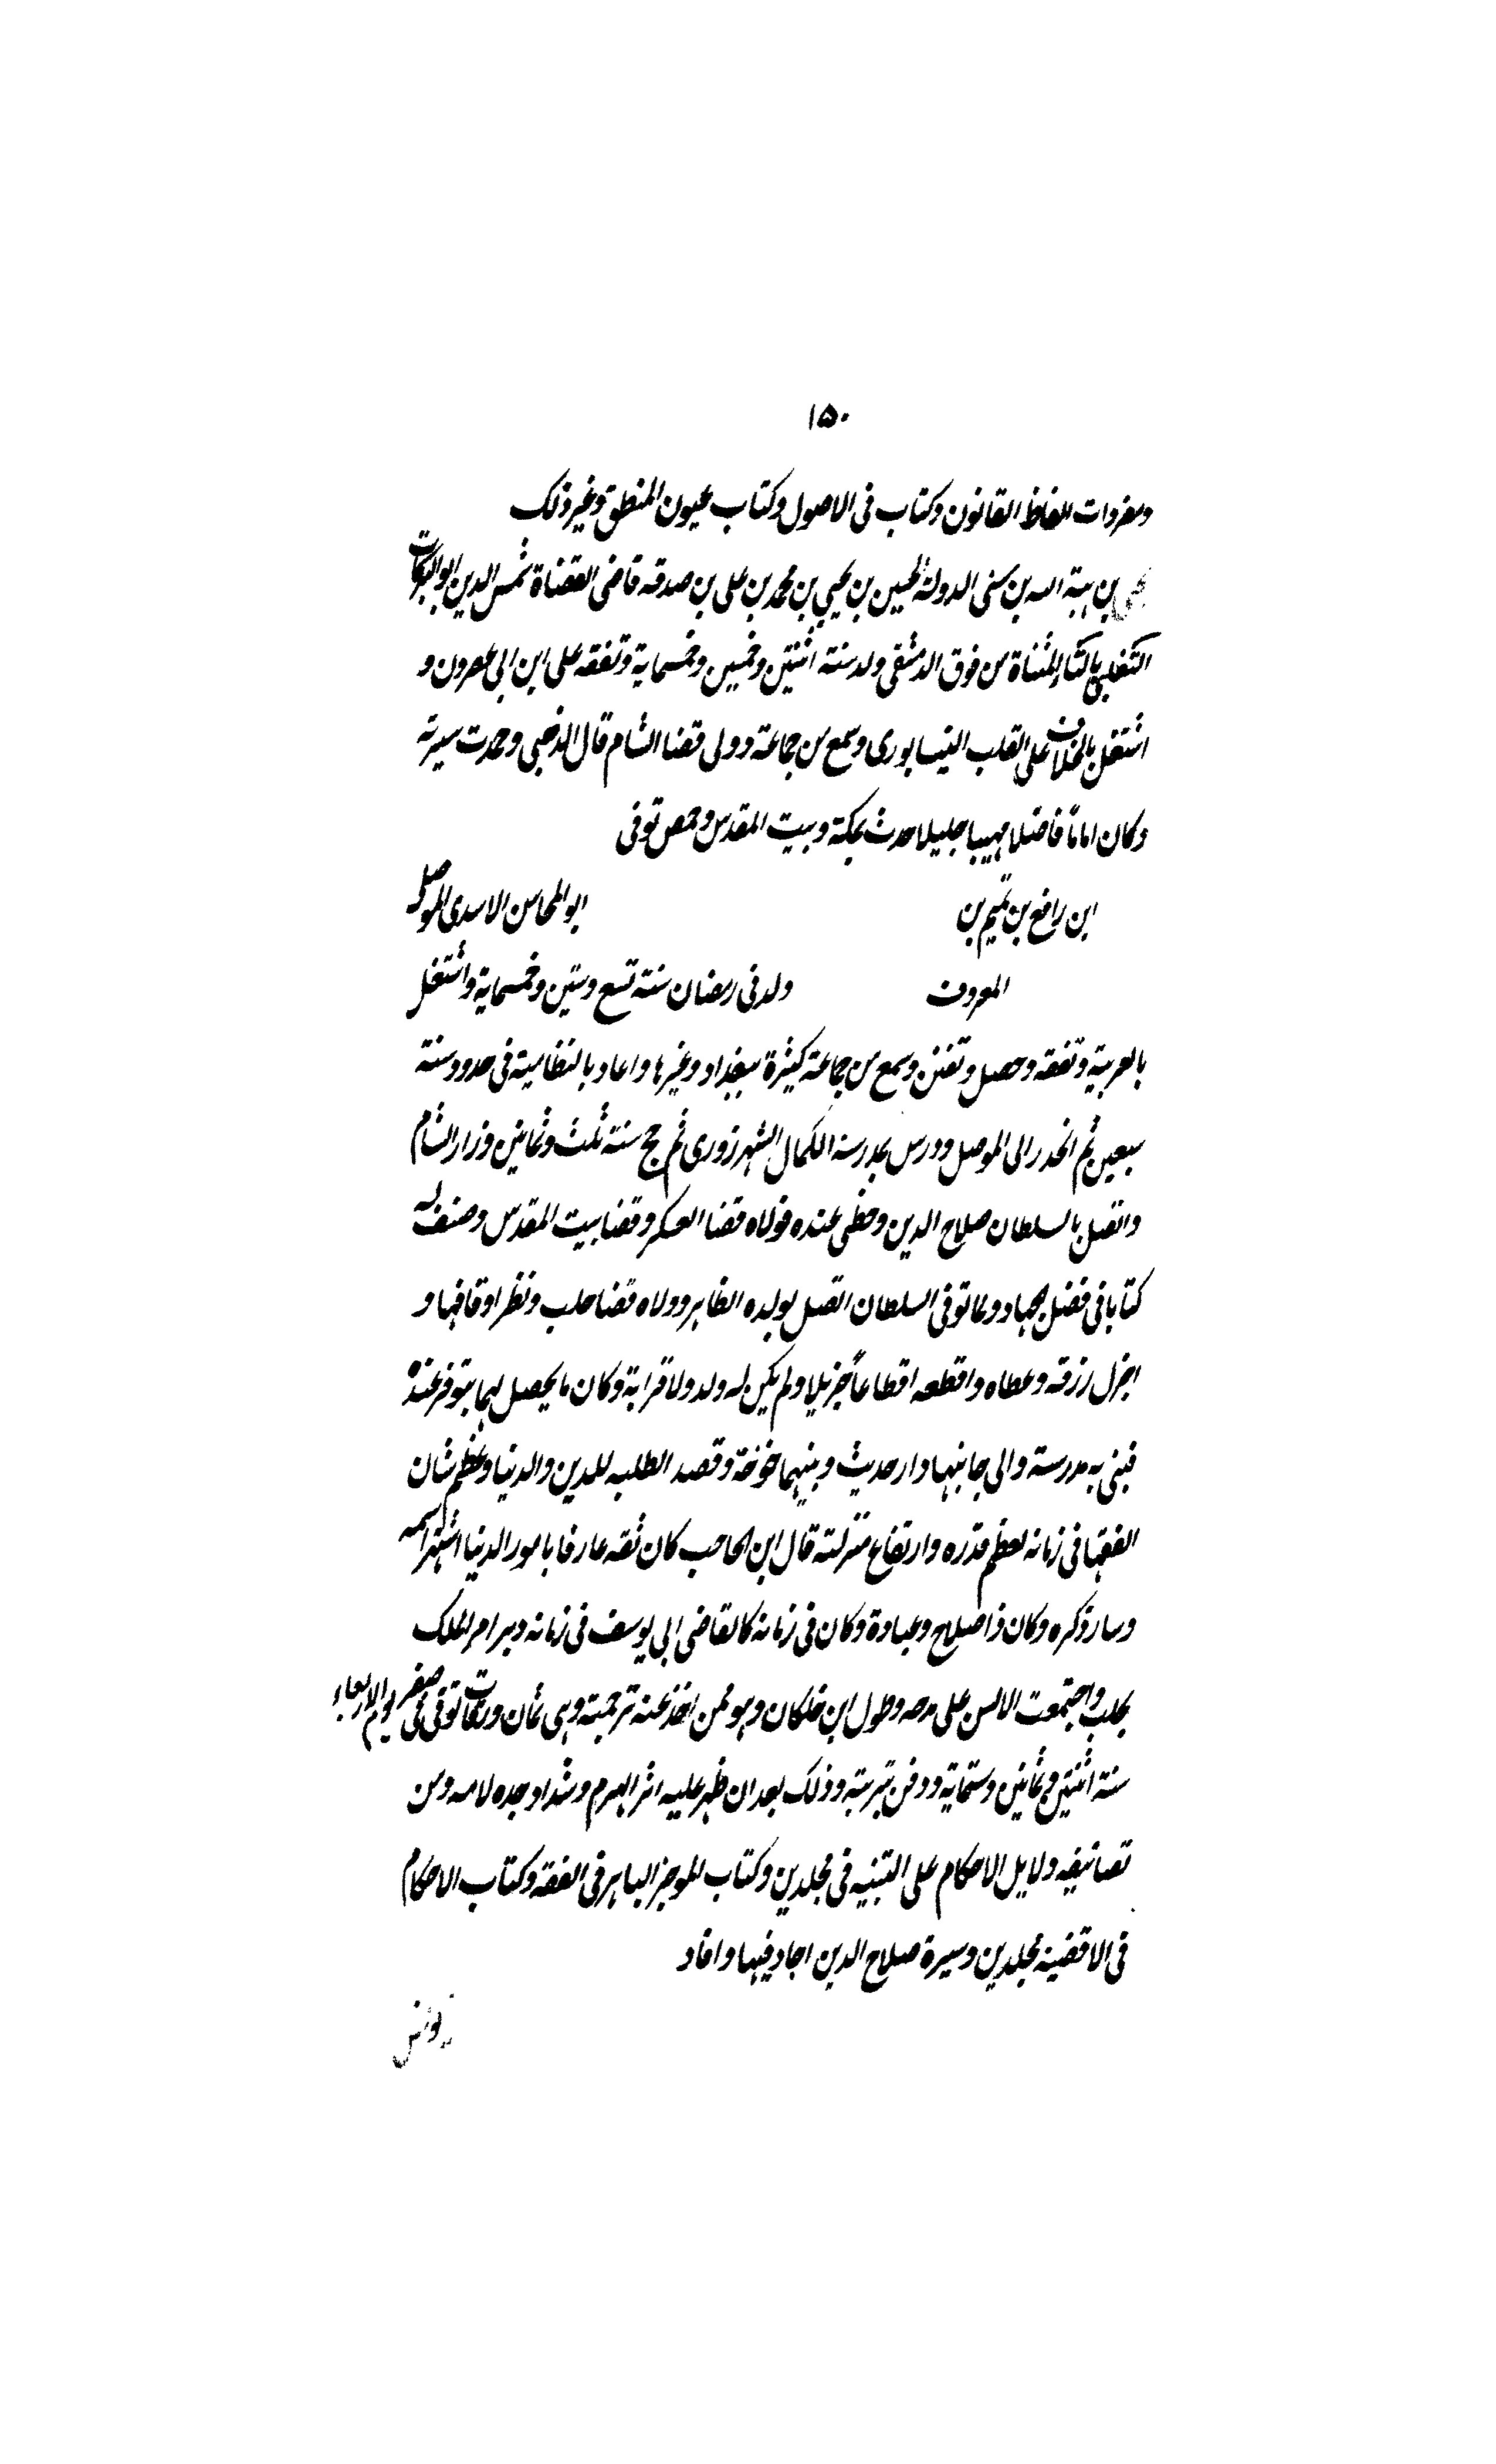 ۱۵۰
ومفردات الفاظ القانون وكتاب فى الاصول وكتاب عيون المنطق وغير ذلك
يحيى بن هبة الله بن سنى الدولة الحسين بن يحيى بن محمد بن على بن صدقه قاضى القضاة شمس الدين ابو البركات
التغلبى بالتاء المثناة من فوق الدمشقى ولد سنة اثنتين وخمسين وخمسماية وتفقه على ابن ابى عصرون و
اشتغل بالخلاف على القلب النيسابورى وسمع من جماعة وولى قضا الشام قال الذهبى وحمدت سيرته
وكان اماماً فاضلا مهيبا جليلا حدث بمكة وبيت المقدس وحمص توفى
ابن رافع بن تميم بن ابو المحاسن الاسدى الموصلى
المعروف ولد فى رمضان سنة تسع وستين وخمسماية واشتغل
بالعربية وتفقه وحصل وتفنن وسمع من جماعة كثيرة ببغداد وغيرها واعاد بالنظامية فى حدود سنة
سبعين ثم انحدر الى الموصل ودرس بمدرسة الكمال الشهرزورى ثم حج سنة ثلث وثمانين وزار الشام
واتصل بالسلطان صلاح الدين وحظى عنده فولاه قضا العسكر وقضا بيت المقدس وصنف له
كتابا فى فضل الجهاد ولما توفى السلطان اتصل بولده الظاهر وولاه قضا حلب ونظر اوقافها و
اجزل رزقه وعطاه واقطعه اقطاعاً جزيلا ولم يكن له ولد ولا قرابة وكان ما يحصل لهما يتوفر عنده
فبنى به مدرسة والى جانبها دار حديث وبينهما خوخة وقصد الطلبه للدين والدنيا وعظم شان
الفقها فى زمانه لعظم قدره وارتفاع منزلته قال ابن الحاجب كان ثقه عارفا بامور الدنيا اشتهر اسمه
وسار ذكره وكان ذا صلاح وعبادة وكان فى زمانه كالقاضى ابى يوسف فى زمانه دبر امر الملك
بحلب واجتمعت الالسن على مدحه وطول ابن خلكان وهو ممن اخذ عنه ترجمته وهى ثمان ورقات توفى فى صفر يوم الاربعاء
سنة اثنتين وثمانين وستماية ودفن بتربته وذلك بعد ان ظهر عليه اثر الهرم وشداد جده لامه ومن
تصانيفه دلايل الاحكام على التنبيه فى مجلدين وكتاب الموجز الباهر فى الفقه وكتاب الاحكام
فى الاقضية مجلدين وسيرة صلاح الدين اجاد فيها وافاد
يونس